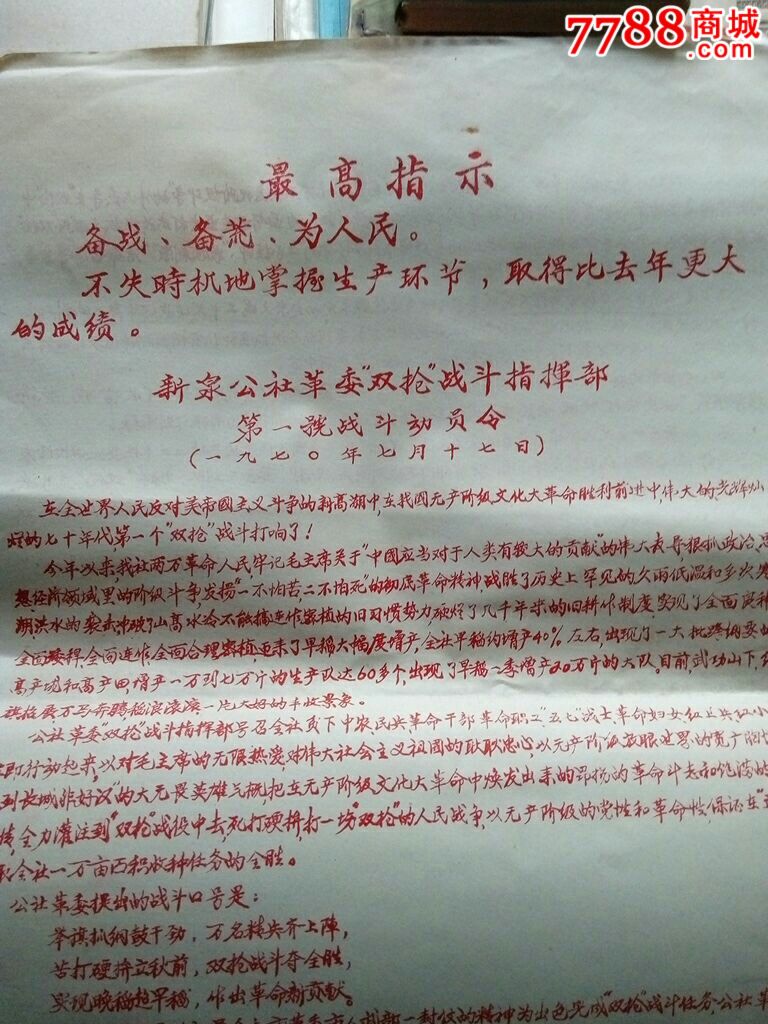 7788商城
.com
最高指示
备战、备荒、为人民。
不失時机地掌握生产环节，取得比去年更大
的成绩。
新泉公社革委“双抢”战斗指揮部
第一號战斗动员令
（一九七〇年七月十七日）
在全世界人民反对美帝國主义斗争的新高潮中,在我國无产阶级文化大革命胜利前进中,伟大的,光辉灿
烂的七十年代,第一个“双抢”战斗打响了！
今年以来,我社两万革命人民牢记毛主席关于“中國应当对于人类有较大的贡献”的伟大教导,狠抓政治,思
想经济领域里的阶级斗争,发揚“一不怕苦,二不怕死”的彻底革命精神,战胜了历史上罕见的久雨低温和多次
洪水的袭击,冲破了山高水冷不能搞连作密植的旧习惯势力,砸烂了几千年来的旧耕作制度,实现了全面
全面 全面连作,全面合理密植,迎来了早稻大幅度增产,全社早稻约增产40%左右,出现了一大批
高产坵和高产田,增产一万到七万斤的生产队达60多个,出现了早稻一季增产20万斤的大队。目前,武功山下,
万马奔腾稻浪滚滚一片大好的丰收景象。
公社革委“双抢”战斗指揮部号召全社贫下中农,民兵,革命干部,革命职工“五七”战士革命妇女 红小
即行动起来,以对毛主席的无限热爱,对伟大社会主义祖國的耿耿忠心,以无产阶级放眼世界的宽广胸
到长城非好汉”的大无畏英雄气概,把在无产阶级文化大革命中焕发出来的昂扬的革命斗志和饱满的
全力灌注到“双抢”战役中去,死打硬拼,打一场“双抢”的人民战争,以无产阶级的党性和革命性,保证在
全社一万亩面积收种任务的全胜。
公社革委提出的战斗口号是：
举旗抓纲鼓干劲，万名精兵齐上阵，
苦打硬拚立秋前，双抢战斗夺全胜，
实现晚稻超早稻，作出革命新贡献。
一封信的精神,为出色完成“双抢”战斗任务,公社革